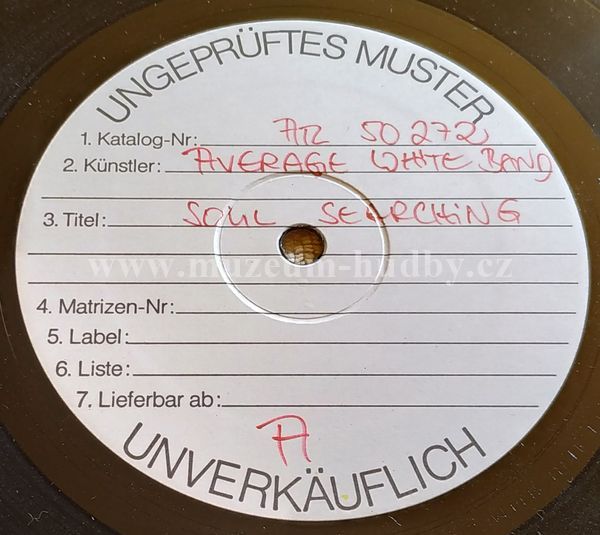 UNGEPRÜFTES MUSTER
1. Katalog-Nr: ATL 50 272
2. Künstler: AVERAGE WHITE BAND
3. Titel: SOUL SEARCHING
www.muzeum-hudby.cz
4. Matrizen-Nr:
5. Label:
6. Liste:
7. Lieferbar ab:
A
UNVERKÄUFLICH